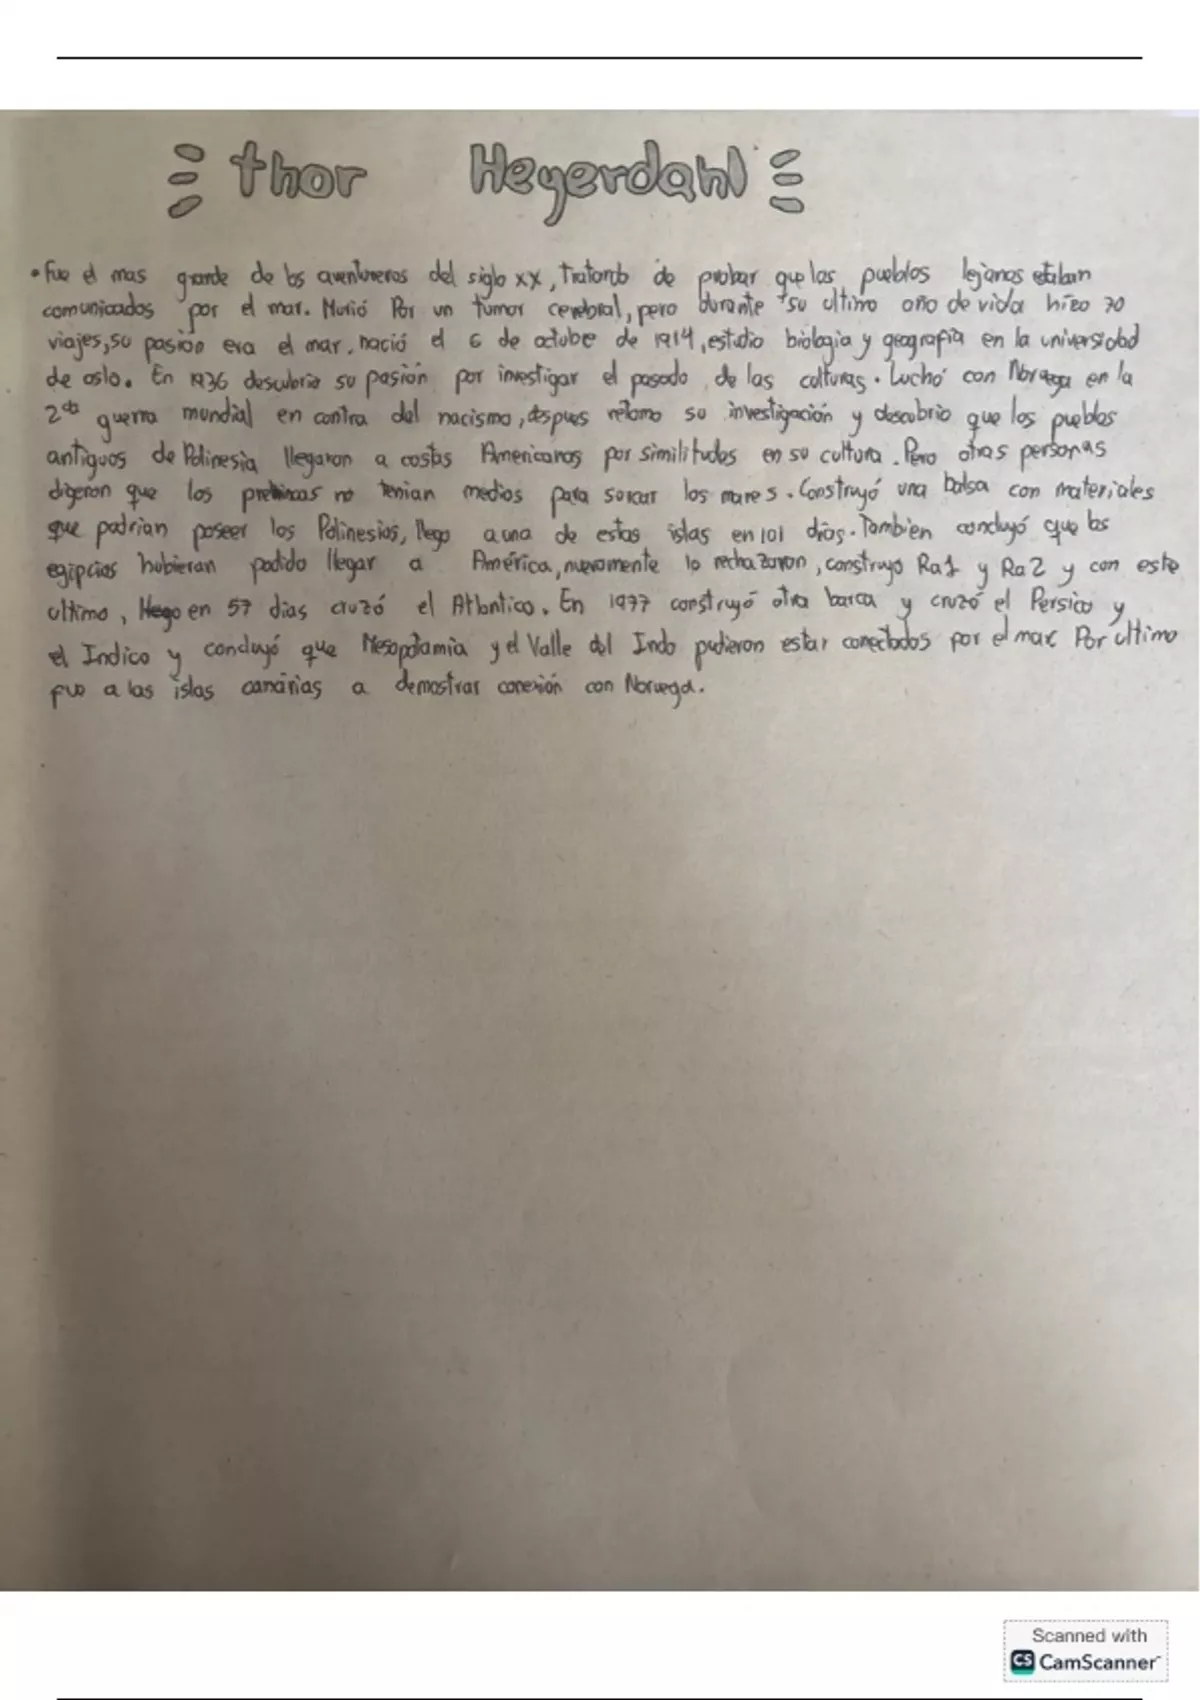 thor Heyerdahl
• Fue el mas grande de los aventureros del siglo xx, Tratando de probar que los pueblos lejanos estaban
comunicados por el mar. Murió Por un tumor cerebral, pero durante su ultimo año de vida hizo 70
viajes, su pasión era el mar. nació el 6 de octubre de 1914, estudio biologia y geografia en la universidad
de oslo. En 1936 descubrio su pasión por investigar el pasado de las culturas. Luchó con Noruega en la
2da guerra mundial en contra del nacismo, despues retomo su investigación y descubrio que los pueblos
antiguos de Polinesia llegaron a costas Americanas por similitudes en su cultura. Pero otras personas
digeron que los no tenian medios para surcar los mares. Construyó una balsa con materiales
que podrian poseer los Polinesios, llego a una de estas islas en 101 dias. Tambien concluyó que los
egipcios hubieran podido llegar a América, nuevamente lo rechazaron, construyo Ra1 y Ra2 y con este
ultimo, llego en 57 dias cruzó el Atlantico. En 1977 construyó otra barca y cruzó el Persico y
el Indico y concluyó que Mesopotamia y el Valle del Indo pudieron estar conectados por el mar. Por ultimo
fue a las islas canarias a demostrar conexión con Noruega.
Scanned with
CS CamScanner